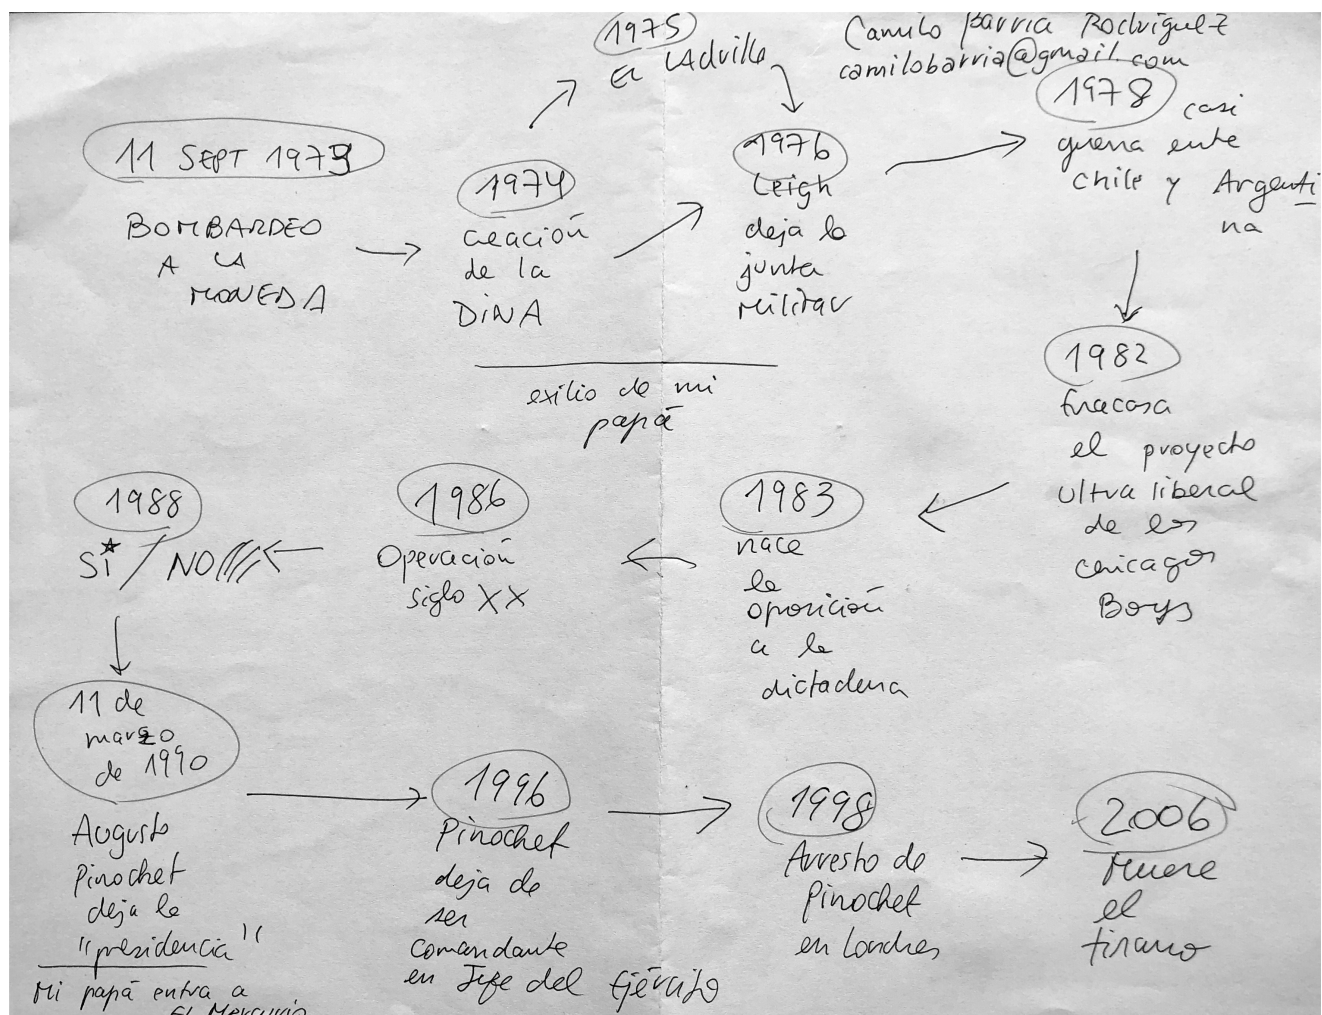 Camilo Barria Rodriguez
camilobarria@gmail.com
11 SEPT 1973
BOMBARDEO
A LA
MONEDA
1974
creación
de la
DINA
1975
El Ladrillo
1976
Leigh
deja la
junta
militar
1978
casi
guerra ente
Chile y Argenti
na
exilio de mi
papá
1982
fracasa
el proyecto
ultra liberal
de los
chicagos
Boys
1983
nace
la
oposición
a la
dictadura
1986
Operación
siglo XX
1988
Sí / NO
11 de
marzo
de 1990
Augusto
Pinochet
deja la
"presidencia"
Mi papá entra a
El Mercurio
1996
Pinochet
deja de
ser
comandante
en Jefe del Ejército
1998
Arresto de
Pinochet
en Londres
2006
Muere
el
tirano